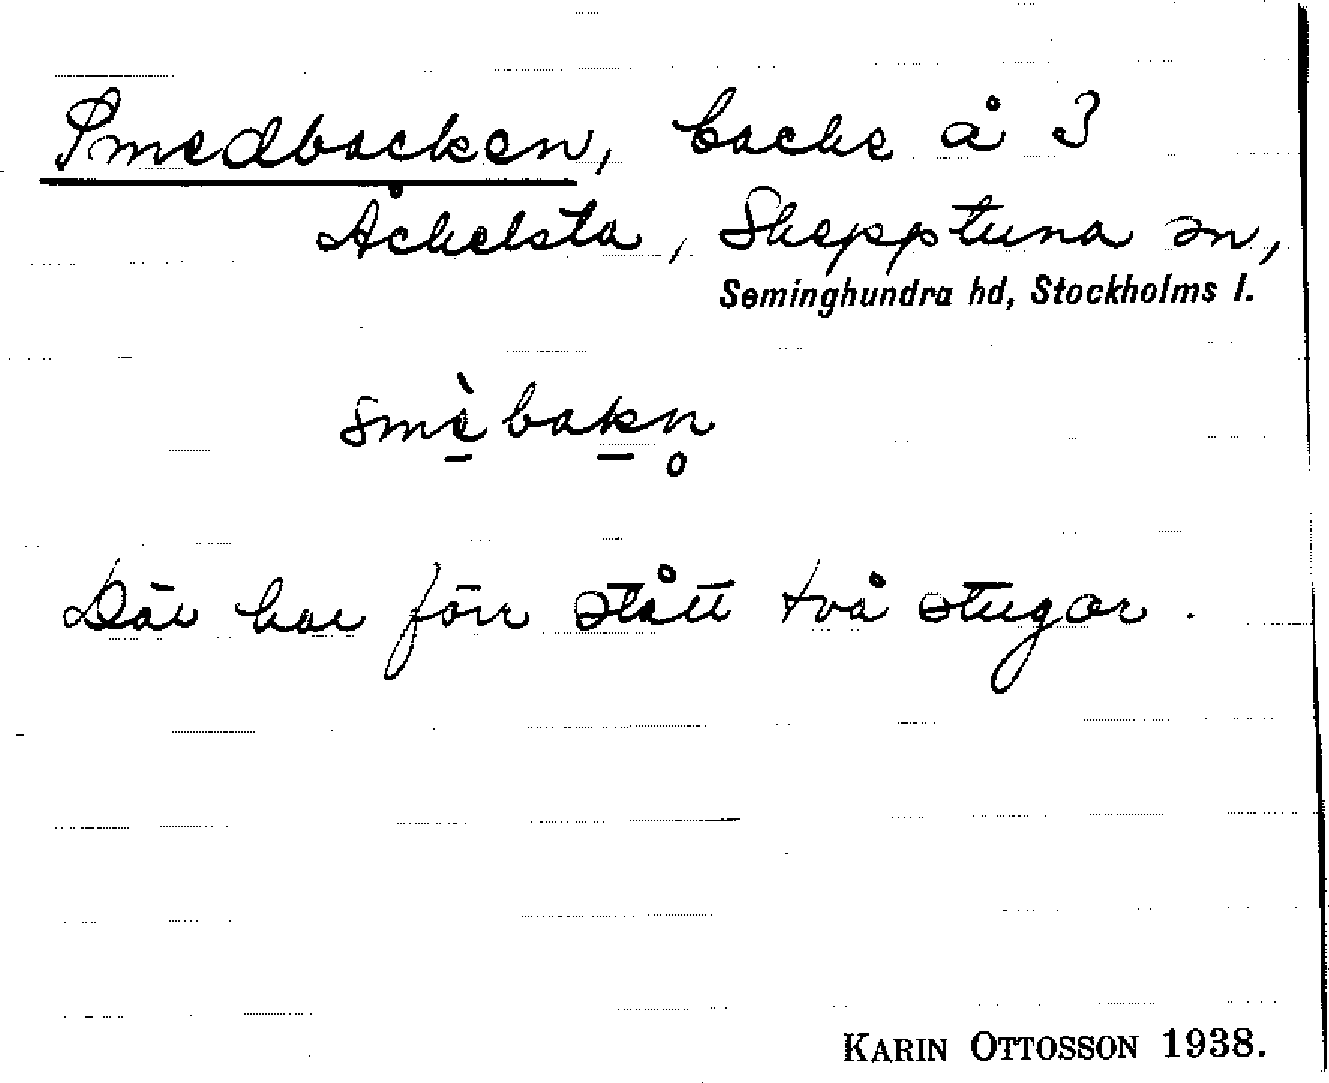 Smedbacken, backe å 3
Åckelsta, Skepptuna sn,
Seminghundra hd, Stockholms l.
smè̱baḵn̥
Där har förr stått två stugor.
KARIN OTTOSSON 1938.